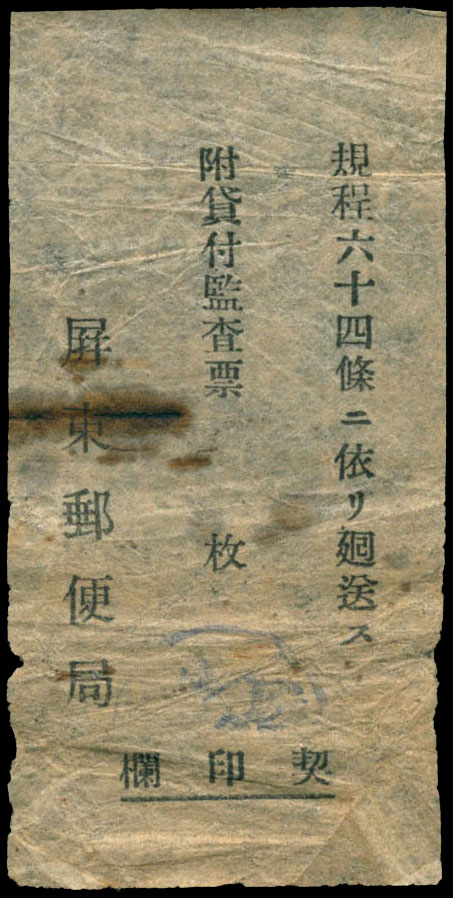 規程六十四條ニ依リ廻送ス
附貸付監査票　枚
屏東郵便局
契印欄